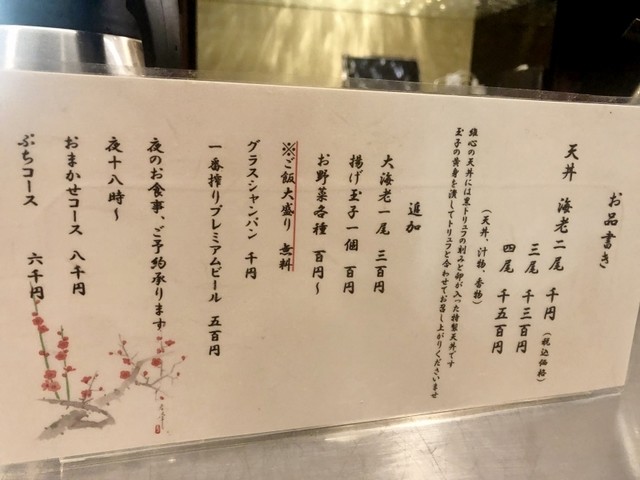 お品書き
天丼　海老二尾　千円（税込価格）
三尾　千三百円
四尾　千五百円
（天丼、汁物、香物）
維心の天丼には黒トリュフの刻みと卵が入った特製天丼です
玉子の黄身を潰してトリュフと合わせてお召し上がりくださいませ
追加
大海老一尾　三百円
揚げ玉子一個　百円
お野菜各種　百円～
※ご飯大盛り　無料
グラスシャンパン　千円
一番搾りプレミアムビール　五百円
夜のお食事、ご予約承ります
夜十八時～
おまかせコース　八千円
ぷちコース　六千円